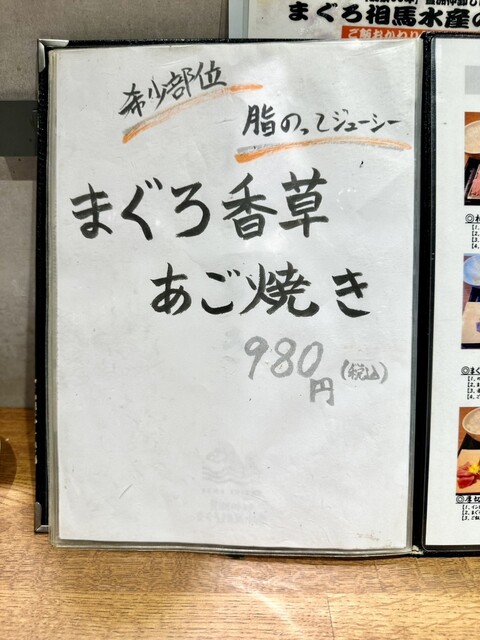 まぐろ相馬水産の
ご飯おかわり
希少部位
脂のってジューシー
まぐろ香草
あご焼き
980
円
(税込)